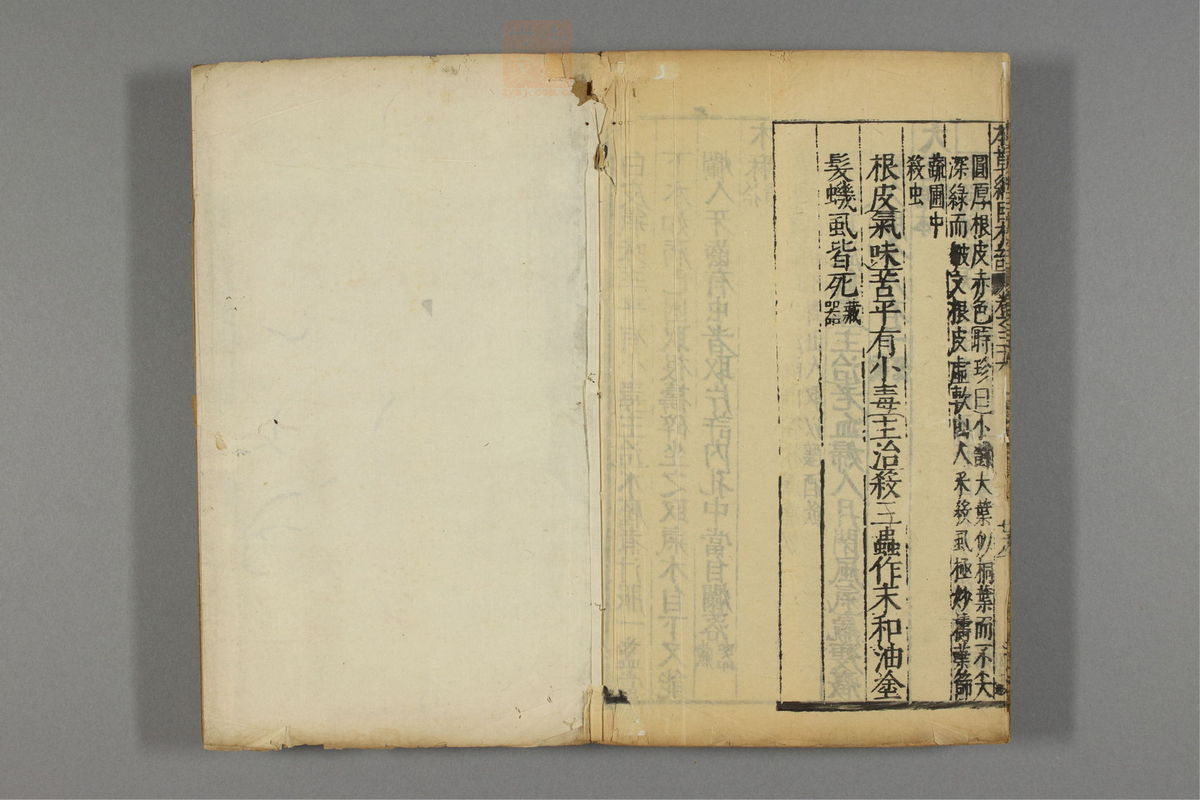 本草綱目木部
圓厚根皮赤色時珍曰小樹大葉似桐葉而不大
深綠而皺文根皮虛軟山人采殺虱極妙搗葉篩
蔬圃中
殺虫
根皮氣味苦平有小毒主治殺三蟲作末和油塗
髮蟣虱皆死藏器